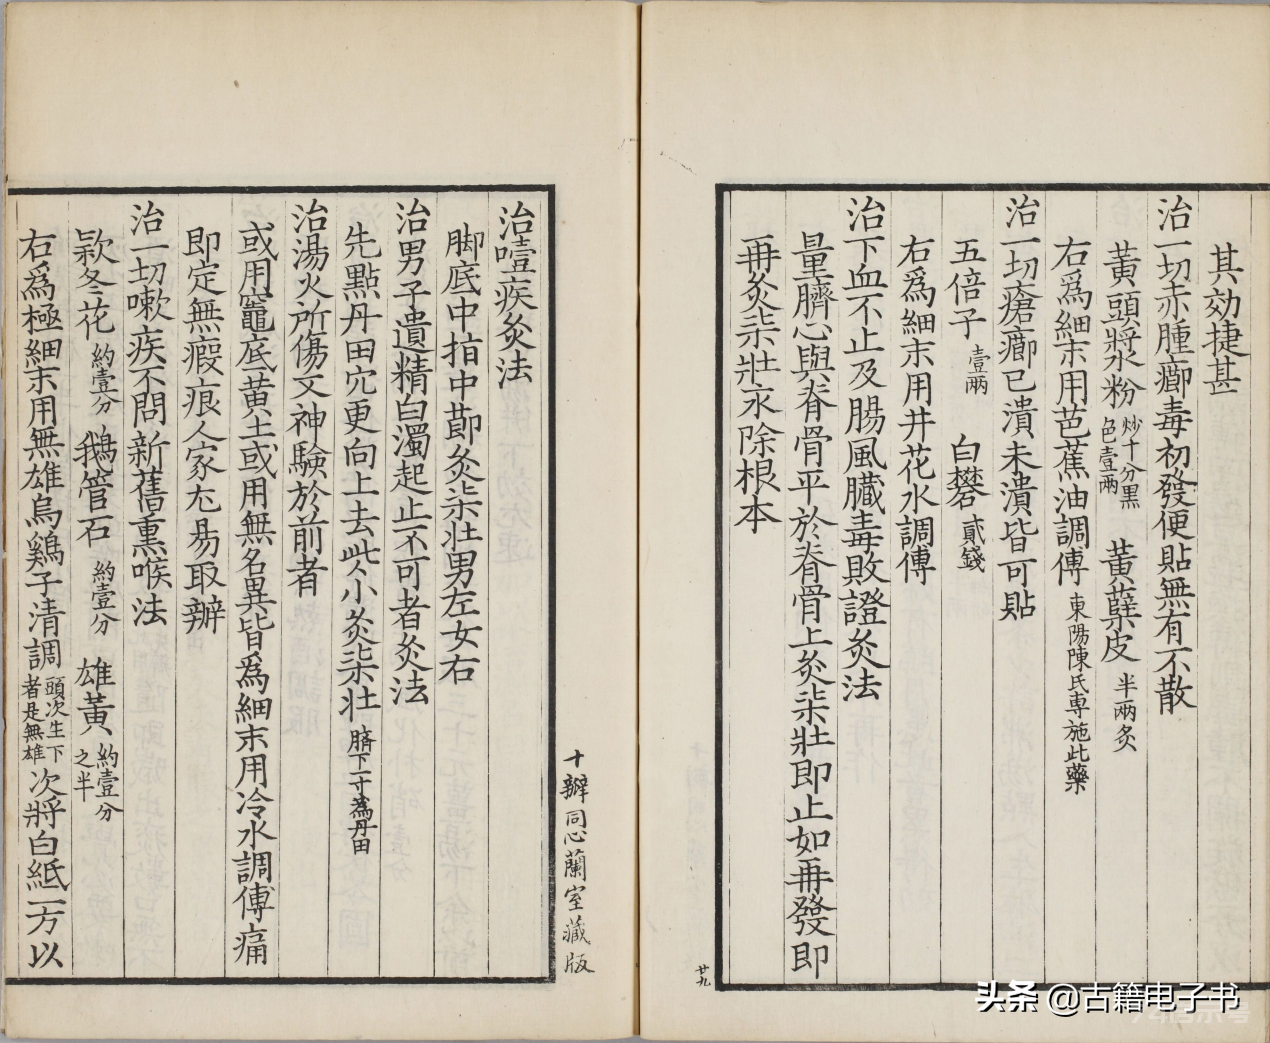 其効捷甚
治一切赤腫癤毒初發便貼無有不散
黃頭漿水粉炒十分黑色壹兩 黃蘗皮半兩炙
右爲細末用芭蕉油調傅東陽陳氏專施此藥
治一切瘡癤已潰未潰皆可貼
五倍子壹兩 白礬貳錢
右爲細末用井花水調傅
治下血不止及腸風臟毒敗證灸法
量臍心與脊骨平於脊骨上灸柒壯即止如再發即
再灸柒壯永除根本
廿九
治噎疾灸法
脚底中指中節灸柒壯男左女右
治男子遺精白濁起止不可者灸法
先點丹田穴更向上去些小灸柒壯臍下一寸為丹田
治湯火所傷又神驗於前者
或用竈底黃土或用無名異皆爲細末用冷水調傅痛
即定無瘢痕人家尤易取辦
治一切嗽疾不問新舊熏喉法
款冬花約壹分 鵝管石約壹分 雄黃約壹分之半
右爲極細末用無雄烏鷄子清調頭次生下者是無雄次將白紙一方以
十瓣同心蘭室藏版
头条 @古籍电子书